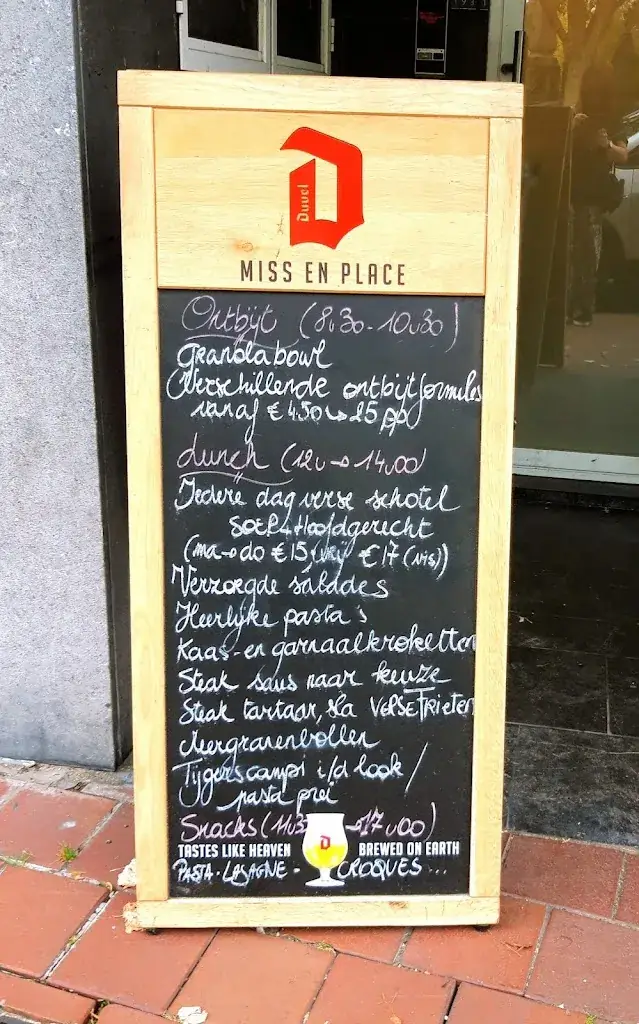 1991
Duvel
MISS EN PLACE
Ontbijt (8u30 - 10u30)
Granolabowl
Verschillende ontbijtformules
vanaf € 4.50 → 25 pp
Lunch (12u → 14u00)
Iedere dag verse schotel
SOEP + Hoofdgerecht
(ma → do € 15, vrij € 17 (vis))
Verzorgde salades
Heerlijke pasta's
Kaas- en garnaalkroketten
Steak saus naar keuze
Steak tartaar, sla VERSE FRIETEN
Meergranenbollen
Tijgerscampi i/d look /
pasta prei
Snacks (11u3 → 17u00)
TASTES LIKE HEAVEN BREWED ON EARTH
PASTA - LASAGNE - CROQUES ...